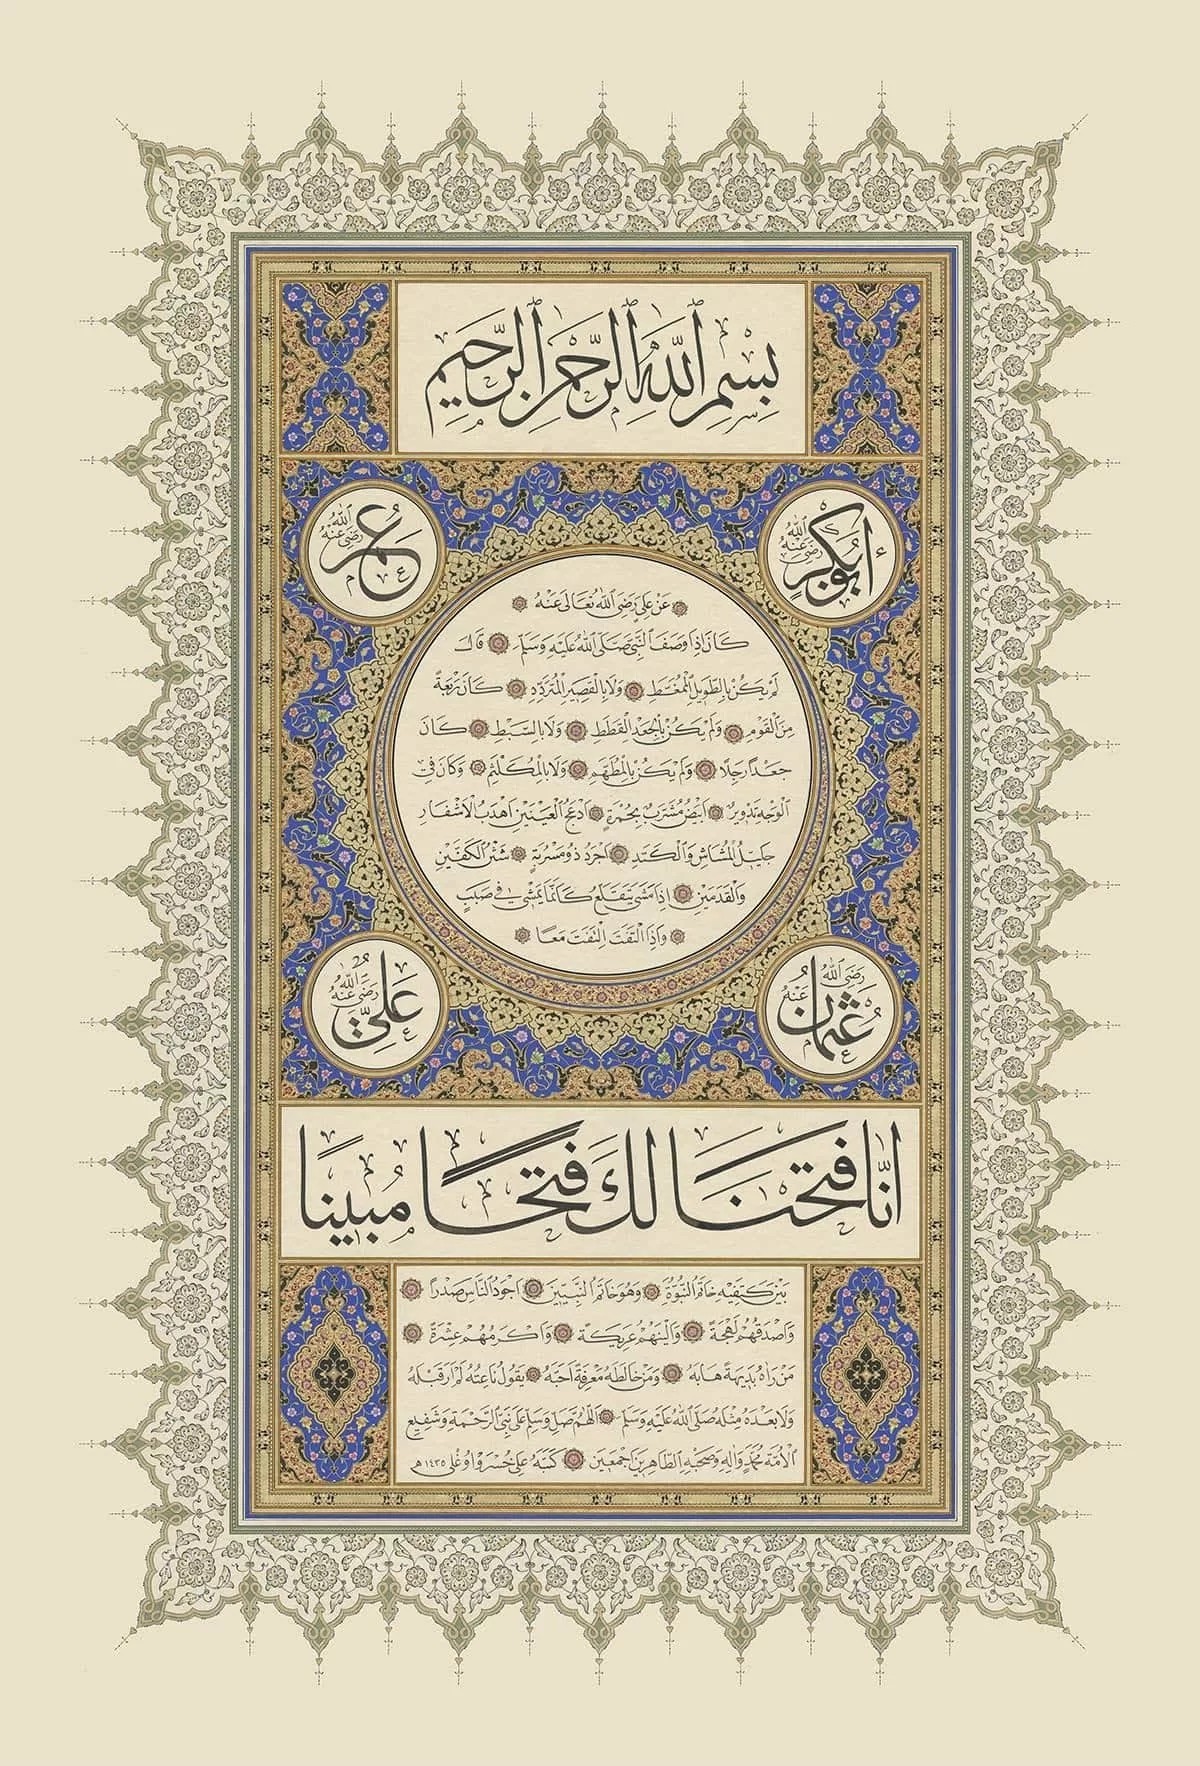 بِسْمِ ٱللّٰهِ ٱلرَّحْمٰنِ ٱلرَّحِيمِ
أبُو بَكْرٍ رَضِيَ ٱللّٰهُ عَنْهُ
عُمَرُ رَضِيَ ٱللّٰهُ عَنْهُ
عَنْ عَلِيٍّ رَضِيَ اللّٰهُ تَعَالَى عَنْهُ
كَانَ اِذَا وَصَفَ النَّبِيَّ صَلَّى اللّٰهُ عَلَيْهِ وَسَلَّمَ قَالَ
لَمْ يَكُنْ بِالطَّوِيلِ الْمُمَّغِطِ وَلَا بِالْقَصِيرِ الْمُتَرَدِّدِ كَانَ رَبْعَةً
مِنَ الْقَوْمِ وَلَمْ يَكُنْ بِالْجَعْدِ الْقَطَطِ وَلَا بِالسَّبْطِ كَانَ
جَعْدًا رَجِلًا وَلَمْ يَكُنْ بِالْمُطَهَّمِ وَلَا بِالْمُكَلْثَمِ وَكَانَ فِي
الْوَجْهِ تَدْوِيرٌ اَبْيَضُ مُشْرَبٌ بِحُمْرَةٍ اَدْعَجُ الْعَيْنَيْنِ اَهْدَبُ الْاَشْفَارِ
جَلِيلُ الْمُشَاشِ وَالْكَتَدِ اَجْرَدُ ذُو مَسْرُبَةٍ شَثْنُ الْكَفَّيْنِ
وَالْقَدَمَيْنِ اِذَا مَشَى يَتَقَلَّعُ كَاَنَّمَا يَمْشِي فِي صَبَبٍ
وَاِذَا الْتَفَتَ الْتَفَتَ مَعًا
عُثْمَانُ رَضِيَ ٱللّٰهُ عَنْهُ
عَلِيٌّ رَضِيَ ٱللّٰهُ عَنْهُ
اِنَّا فَتَحْنَا لَكَ فَتْحًا مُبِينًا
بَيْنَ كَتِفَيْهِ خَاتَمُ النُّبُوَّةِ وَهُوَ خَاتَمُ النَّبِيِّينَ اَجْوَدُ النَّاسِ صَدْرًا
وَاَصْدَقُهُمْ لَهْجَةً وَاَلْيَنُهُمْ عَرِيكَةً وَاَكْرَمُهُمْ عِشْرَةً
مَنْ رَاٰهُ بَدِيهَةً هَابَهُ وَمَنْ خَالَطَهُ مَعْرِفَةً اَحَبَّهُ يَقُولُ نَاعِتُهُ لَمْ اَرَ قَبْلَهُ
وَلَا بَعْدَهُ مِثْلَهُ صَلَّى اللّٰهُ عَلَيْهِ وَسَلَّمَ اَللّٰهُمَّ صَلِّ وَسَلِّمْ عَلَى نَبِيِّ الرَّحْمَةِ وَشَفِيعِ
الْاُمَّةِ مُحَمَّدٍ وَاٰلِهِ وَصَحْبِهِ الطَّاهِرِينَ اَجْمَعِينَ كَتَبَهُ عَلِي خُسْرَوْاوُغْلِي ١٤٣٥هـ